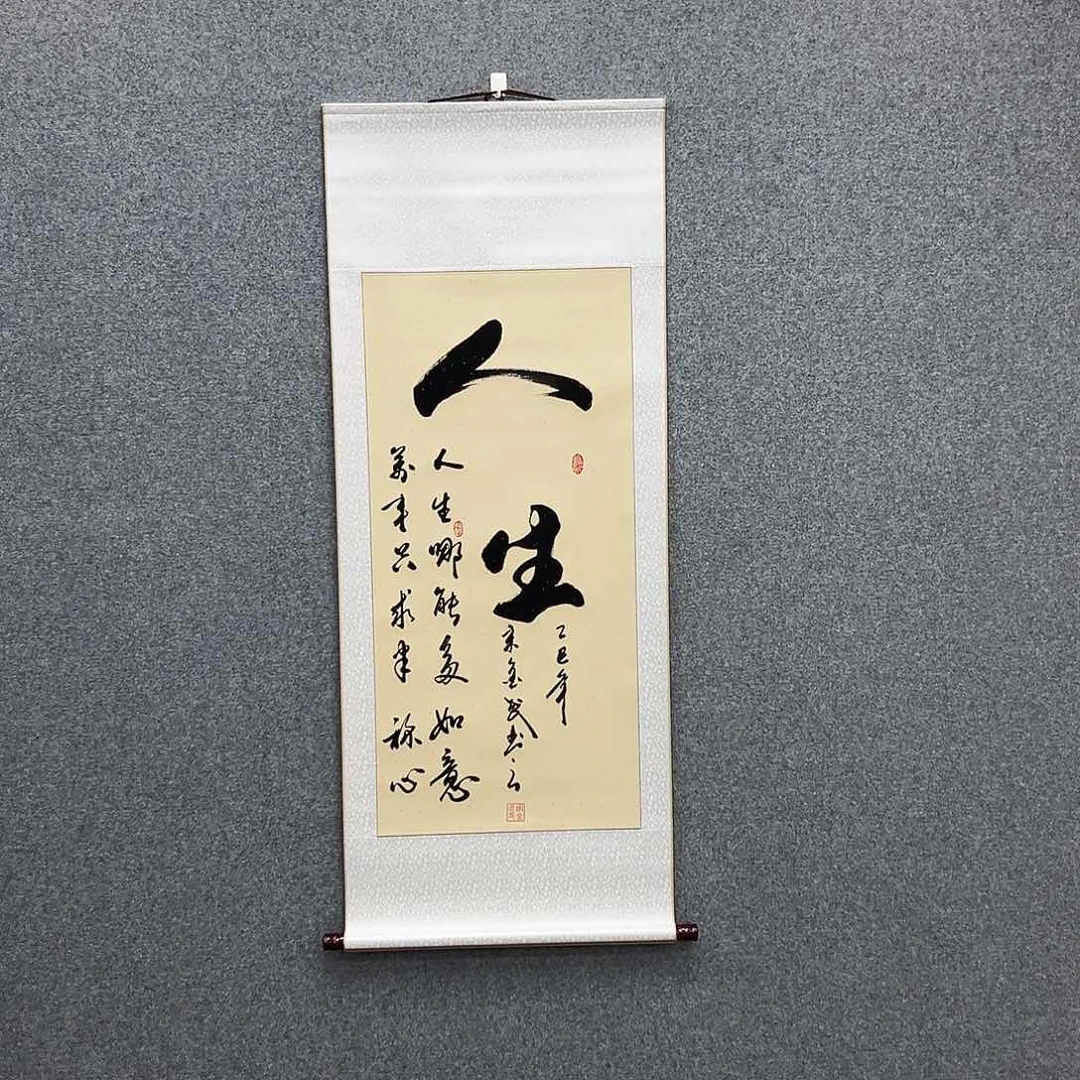 人生
乙巳年
金武书
人生哪能多如意
万事只求半称心